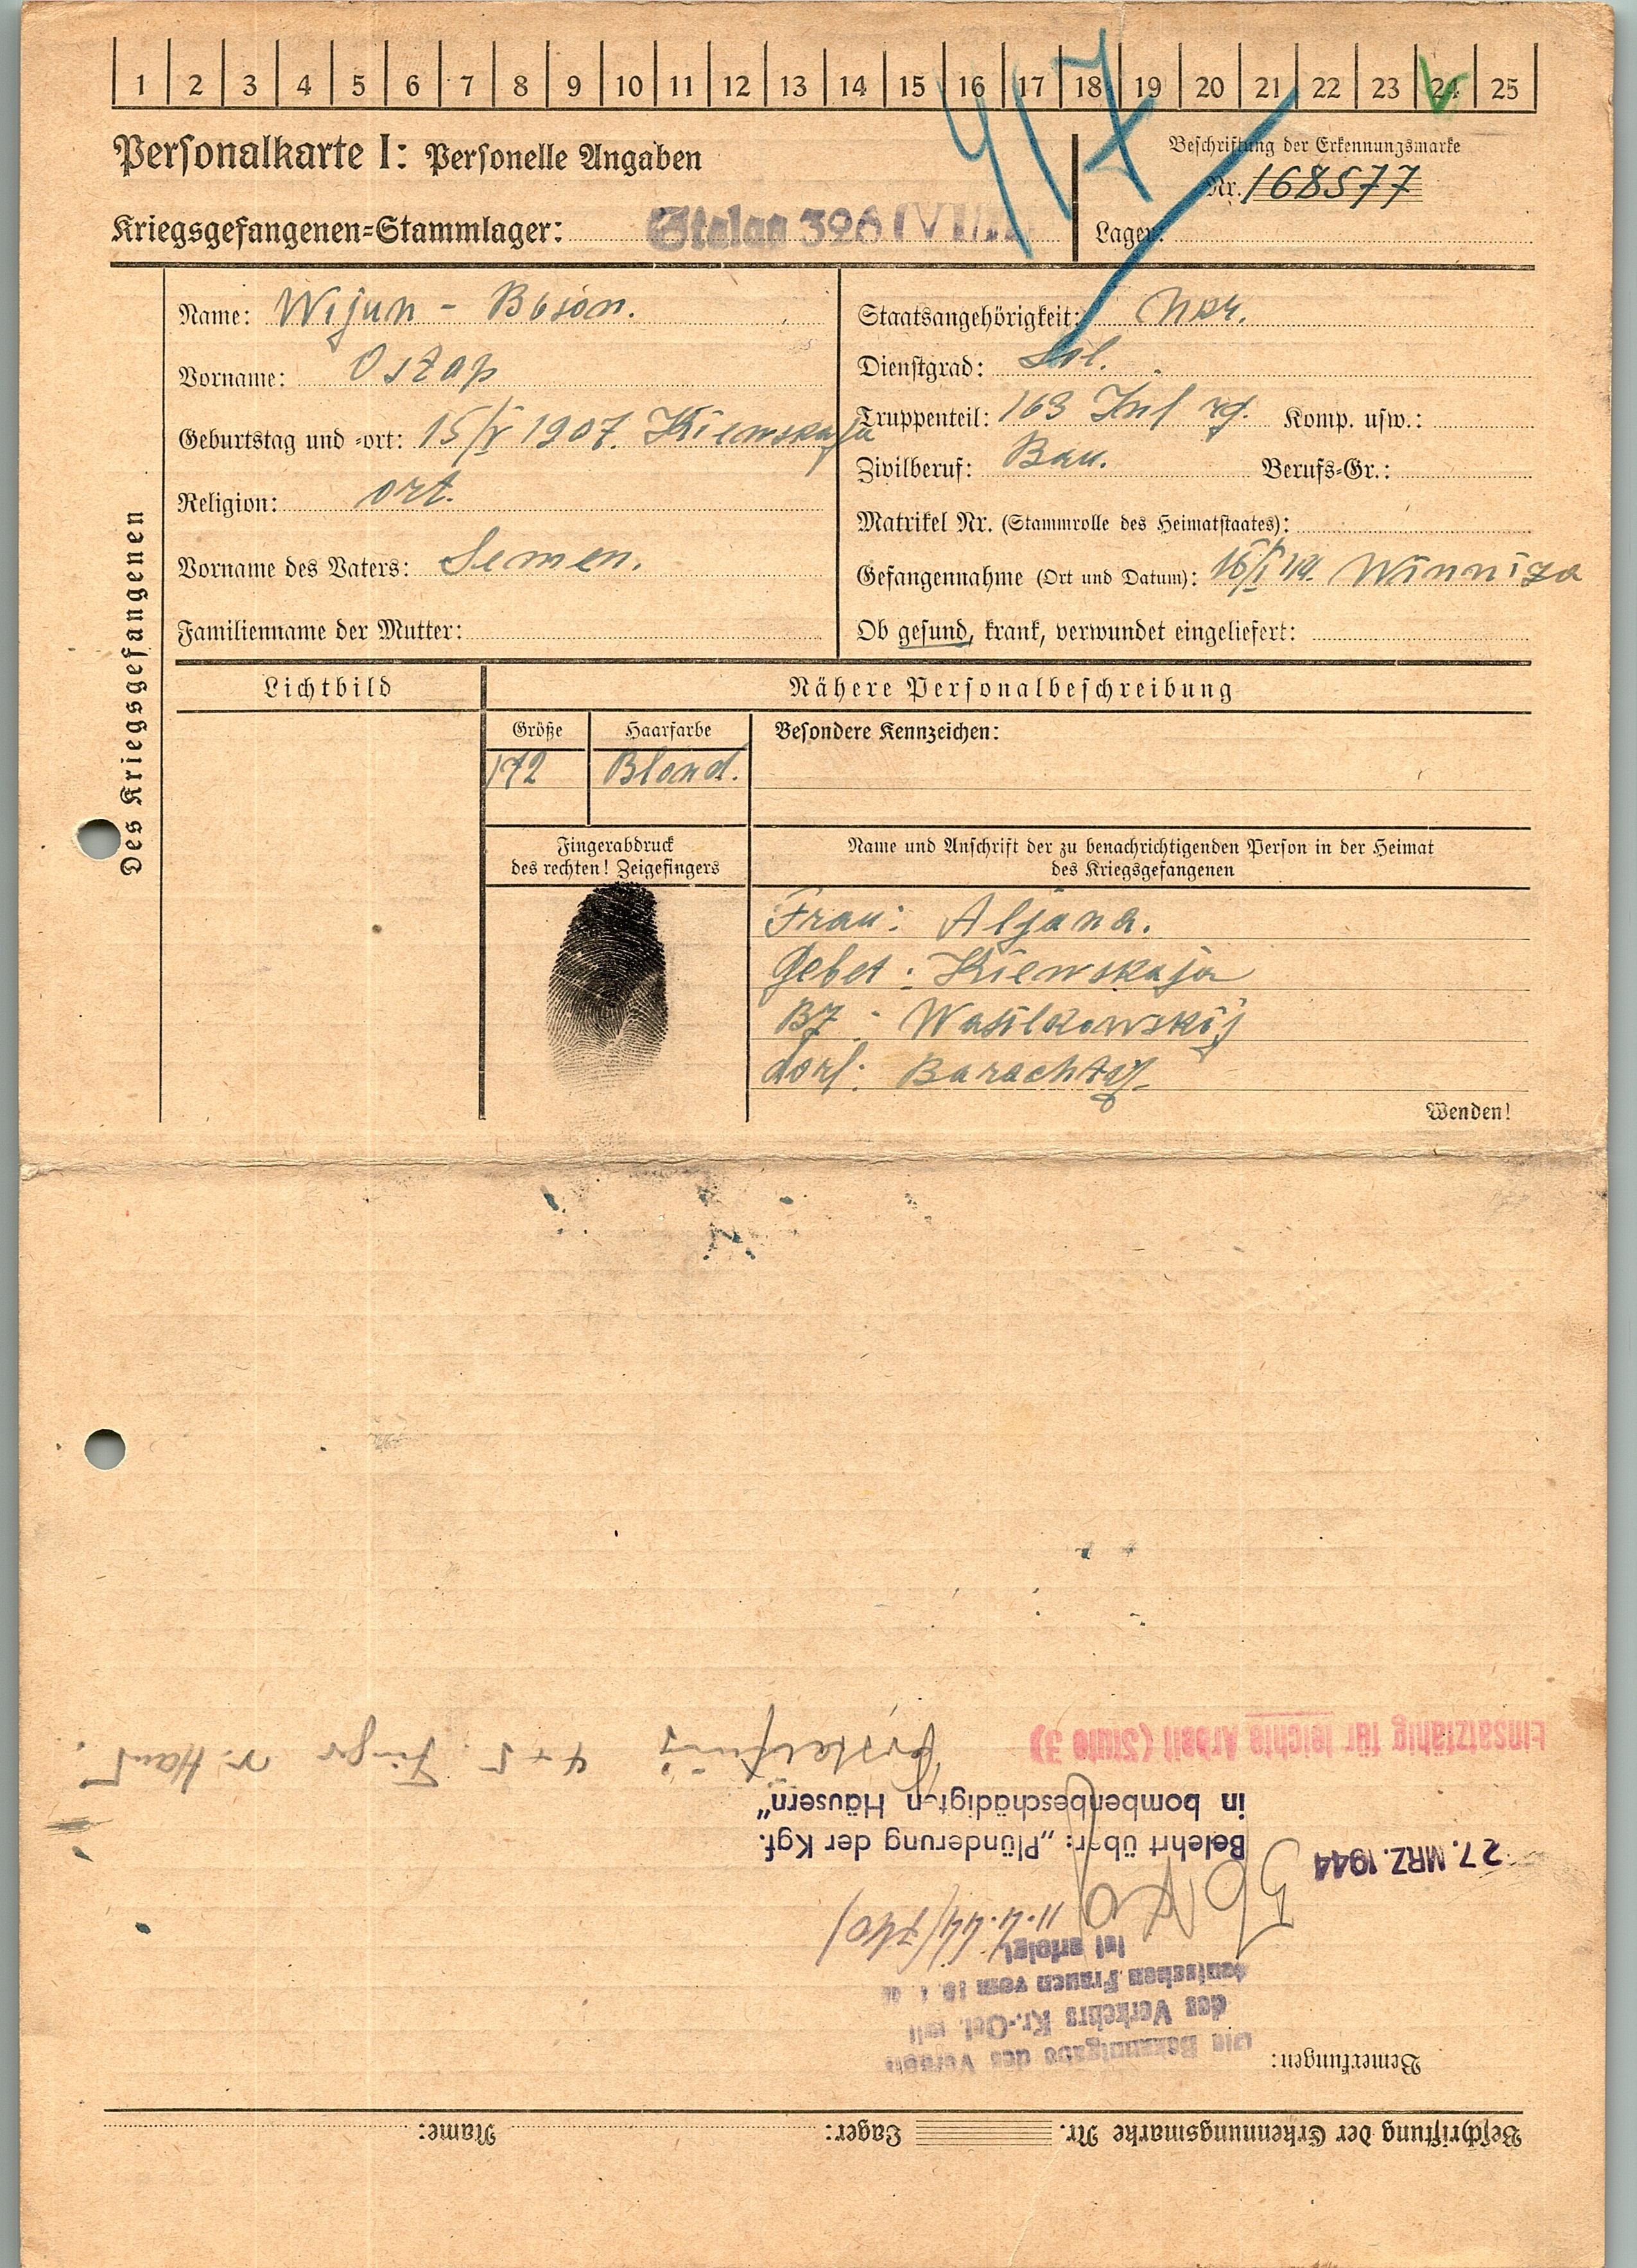 1 2 3 4 5 6 7 8 9 10 11 12 13 14 15 16 17 18 19 20 21 22 23 24 25
917
Personalkarte I: Personelle Angaben
Beschriftung der Erkennungsmarke
Nr. 168577
Kriegsgefangenen-Stammlager: Stalag 326 (VI
Lager:
Des Kriegsgefangenen
Name: Wijun -
Vorname: Ostap
Geburtstag und -ort: 15/V 1907. Kiewskaja
Religion: ort.
Vorname des Vaters: Semen.
Familienname der Mutter:
Staatsangehörigkeit:
Dienstgrad: Sol.
Truppenteil: 163 Inf rg. Komp. usw.:
Zivilberuf: Bau. Berufs-Gr.:
Matrikel Nr. (Stammrolle des Heimatstaates):
Gefangennahme (Ort und Datum): Winniza
Ob gesund, krank, verwundet eingeliefert:
Lichtbild
Nähere Personalbeschreibung
Größe
172
Haarfarbe
Blond.
Besondere Kennzeichen:
Fingerabdruck
des rechten! Zeigefingers
Name und Anschrift der zu benachrichtigenden Person in der Heimat
des Kriegsgefangenen
Frau: Aljana.
Gebet: Kiewskaja
BZ: Wasilkowskij
dorf: Barachtaj
Wenden!
Beschriftung der Erkennungsmarke Nr. Lager: Name:
Bemerkungen:
Die Bekanntgabe des Verbots
des Verkehrs Kr.-Gef. mit
deutschen Frauen vom
ist erfolgt
11.4.44
27. MRZ. 1944
Belehrt über: „Plünderung der Kgf.
in bombenbeschädigten Häusern"
Einsatzfähig für leichte Arbeit (Stufe 3)
Versteifung 4 + 5. Finger r. Hand.